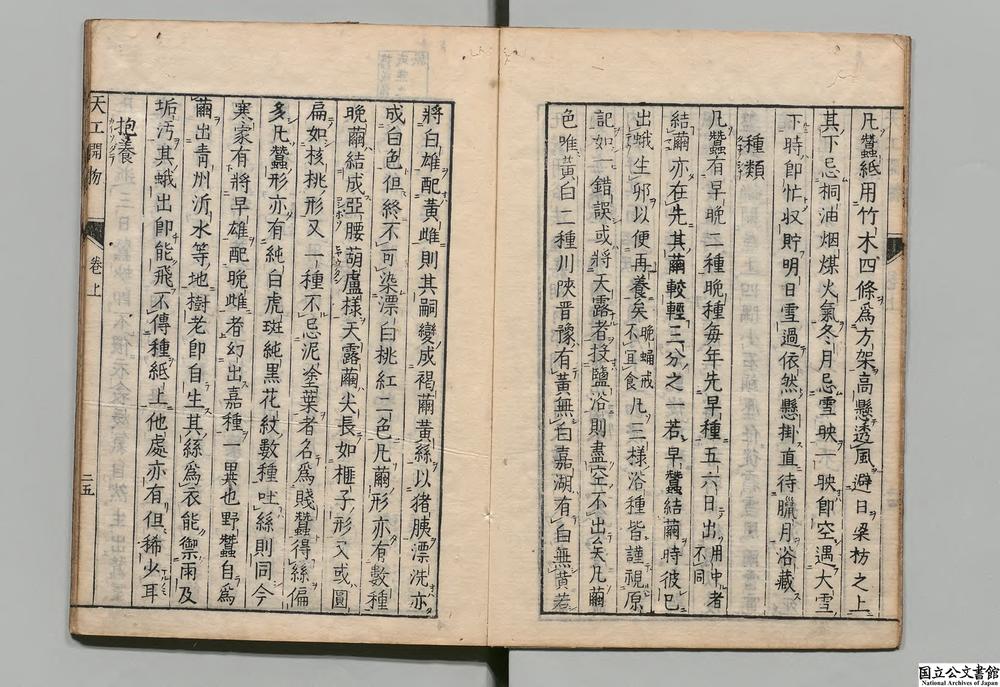 凡蠶紙用竹木四條爲方架高懸透風避日梁枋之上
其下忌桐油烟煤火氣冬月忌雪映一映即空遇大雪
下時即忙收貯明日雪過依然懸掛直待臘月浴藏
種類
凡蠶有早晚二種晚種每年先早種五六日出川中者不同
結繭亦在先其繭較輕三分之一若早蠶結繭時彼已
出蛾生卵以便再養矣晚蛹戒不宜食凡三樣浴種皆謹視原
記如一錯誤或將天露者投鹽浴則盡空不出矣凡繭
色唯黃白二種川陝晉豫有黃無白嘉湖有白無黃若
將白雄配黃雌則其嗣變成褐繭黃絲以猪胰漂洗亦
成白色但終不可染漂白桃紅二色凡繭形亦有數種
晚繭結成亞腰葫蘆樣天露繭尖長如榧子形又或圓
扁如核桃形又一種不忌泥塗葉者名爲賤蠶得絲偏
多凡蠶形亦有純白虎斑純黑花紋數種吐絲則同今
寒家有將早雄配晚雌者幻出嘉種一異也野蠶自爲
繭出青州沂水等地樹老即自生其絲爲衣能禦雨及
垢污其蛾出即能飛不傳種紙上他處亦有但稀少耳
抱養
天工開物
卷上
二五
国立公文書館
National Archives of Japan